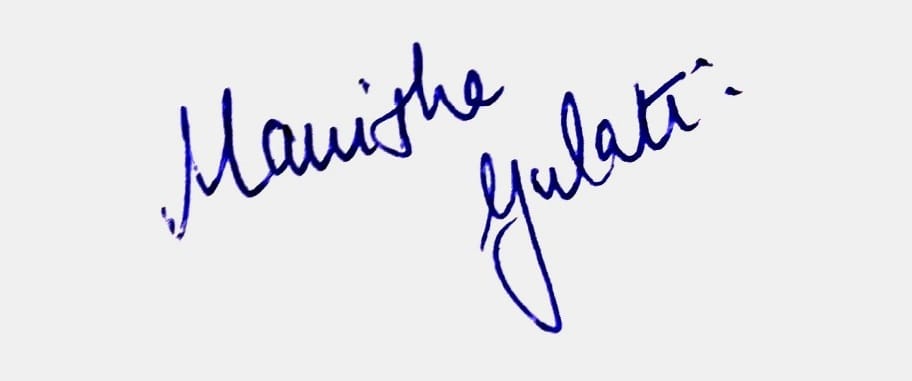 Manisha
Gulati.